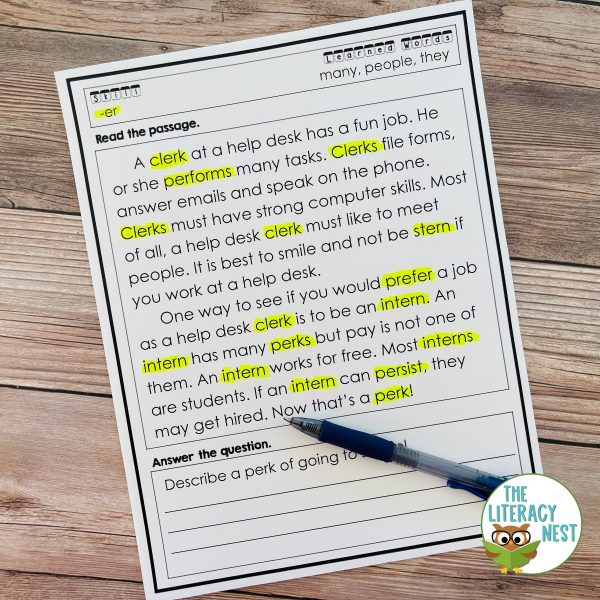 Skill
-er
Learned Words
many, people, they
Read the passage.
A clerk at a help desk has a fun job. He
or she performs many tasks. Clerks file forms,
answer emails and speak on the phone.
Clerks must have strong computer skills. Most
of all, a help desk clerk must like to meet
people. It is best to smile and not be stern if
you work at a help desk.
One way to see if you would prefer a job
as a help desk clerk is to be an intern. An
intern has many perks but pay is not one of
them. An intern works for free. Most interns
are students. If an intern can persist, they
may get hired. Now that's a perk!
Answer the question.
Describe a perk of going to
THE
LITERACY
NEST